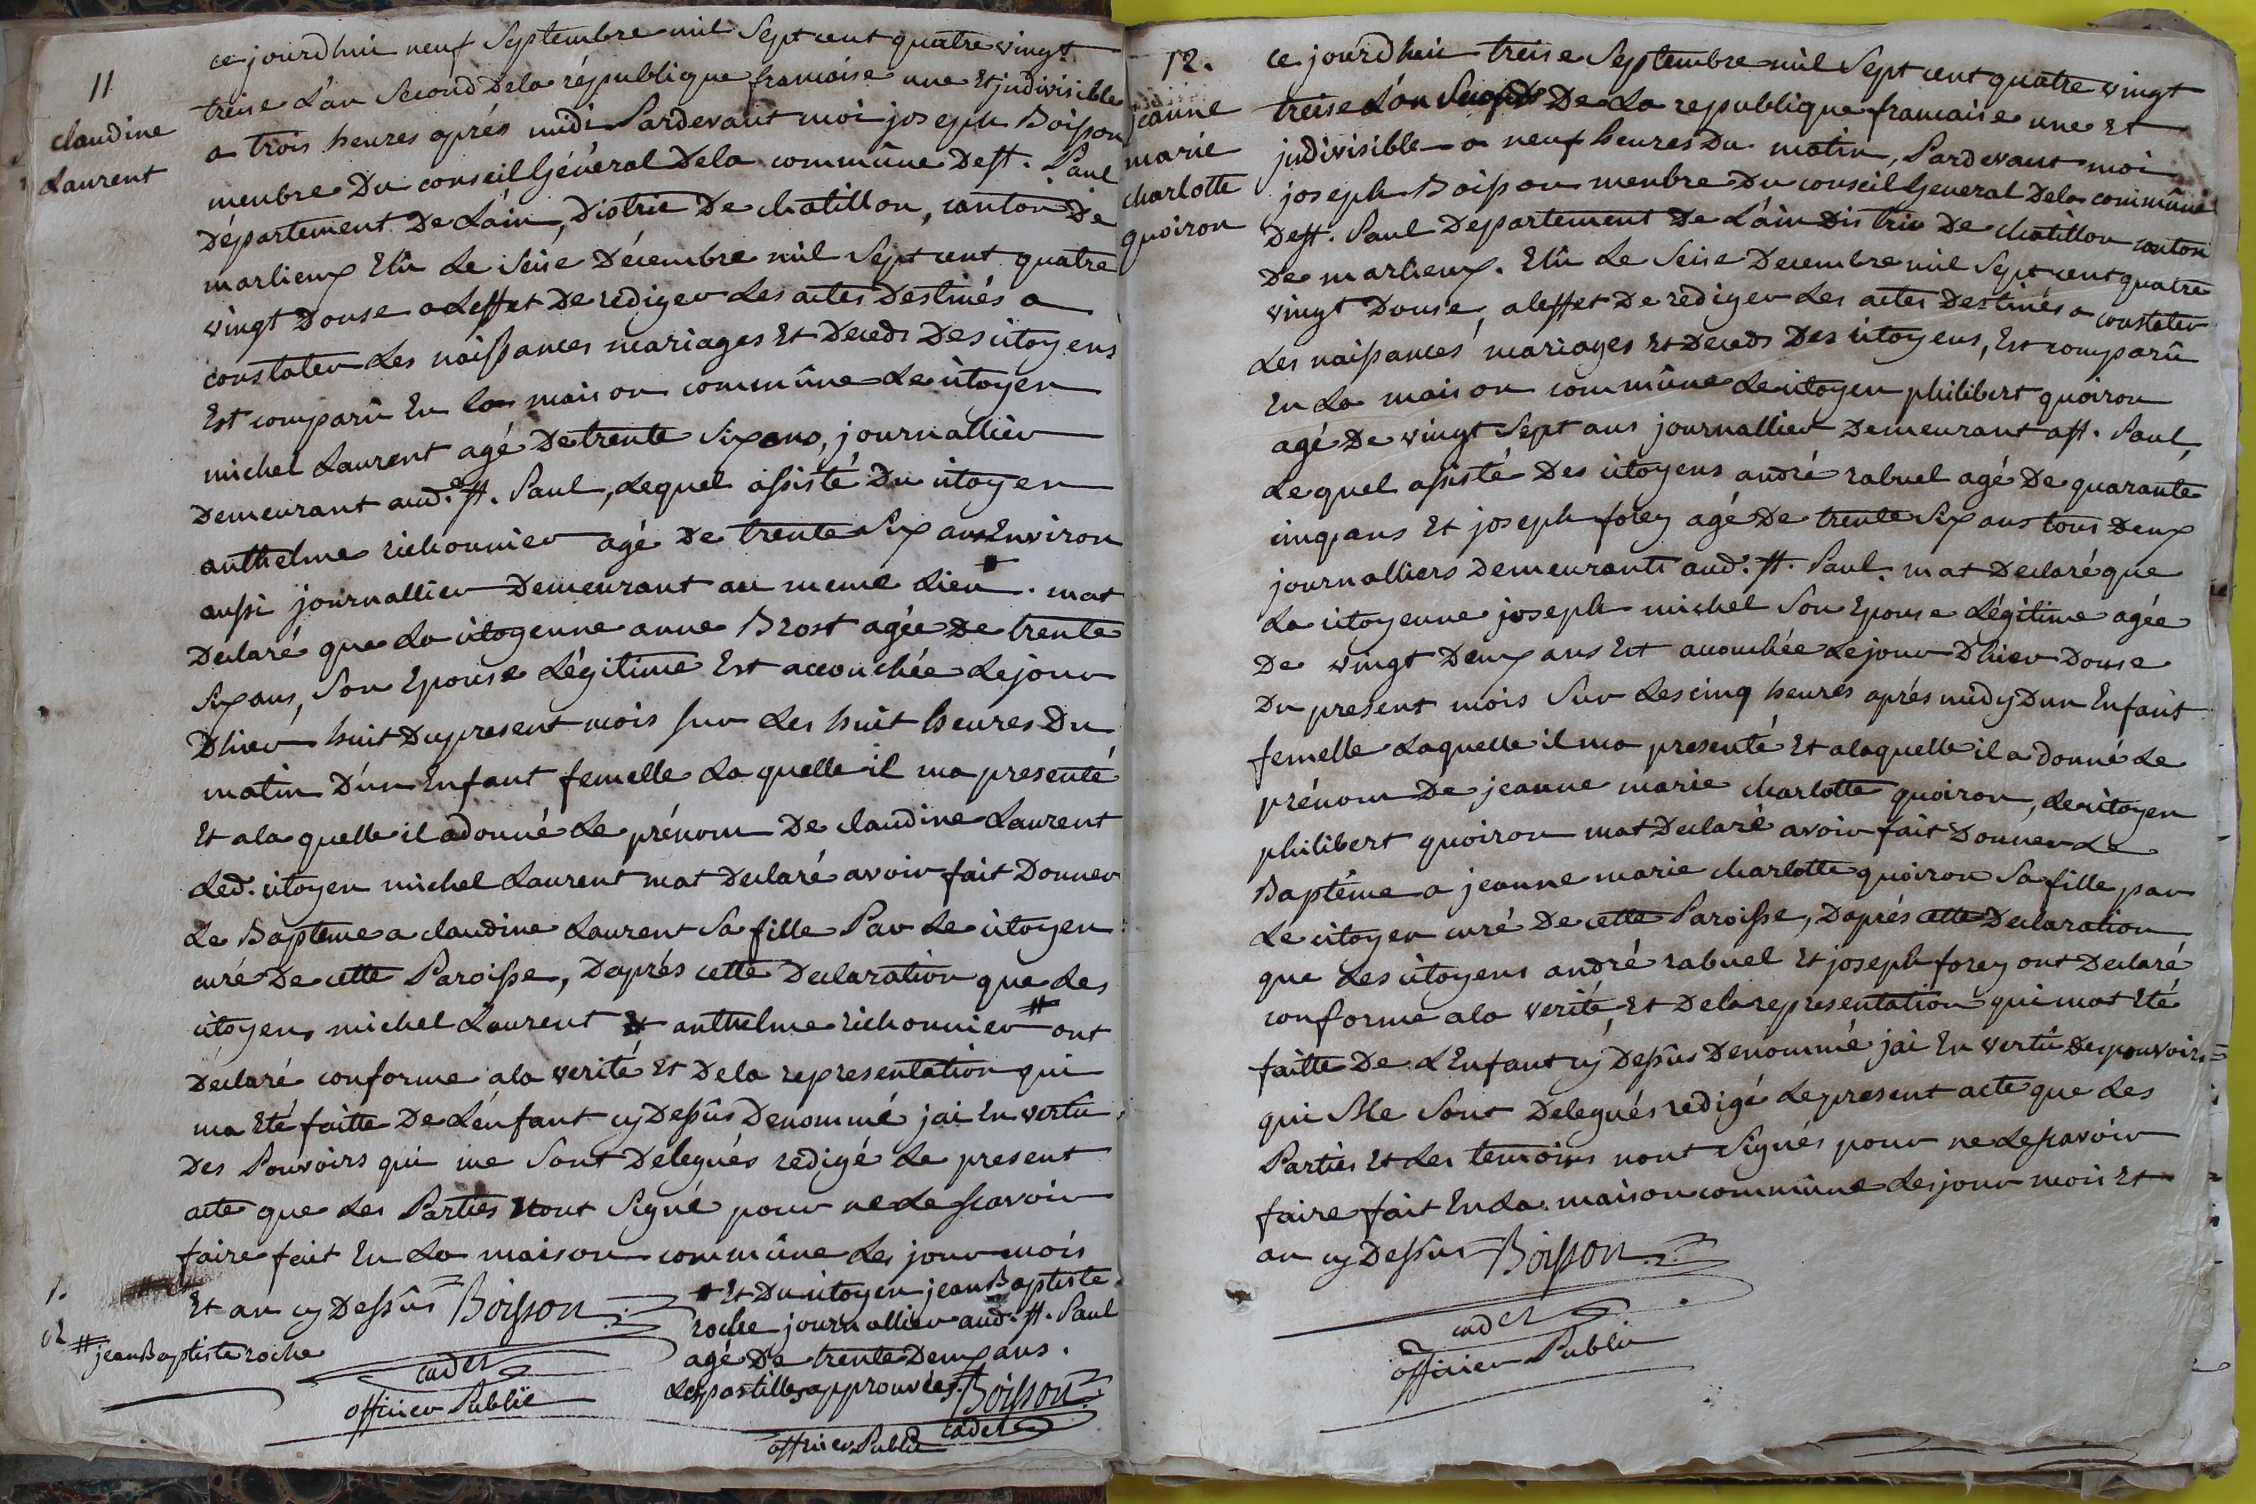 11
claudine
Laurent
ce jourdhui neuf Septembre mil Sept cent quatre vingt
treise L'an Second Dela république francoise une Et jndivisible
a trois heures aprés midi Pardevant moi joseph Boisson
menbre Du conseil Général Dela commûne De st. Paul
Département De L'ain, District De chatillon, canton De
marlieux Elû Le Seise Décembre mil Sept cent quatre
vingt Douse a Leffet De rediger Les actes Destinés a
constater Les naissances mariages Et Deceds Des citoyens
Est comparû En la maison commûne Le citoyen
michel Laurent agé De trente Six ans, journallier
Demeurant aud.t st. Paul, Lequel assisté Du citoyen
anthelme richonnier agé De trente Six ans Environ
aussi journallier Demeurant au meme Lieu #. mat
Declaré que La citoyenne anne Brost agée De trente
Six ans, Son Epouse Légitime Est accouchée Le jour
D'hier huit Du present mois sur Les huit heures Du
matin D'un Enfant femelle La quelle il ma presenté
Et ala quelle il a donné Le prénom De claudine Laurent
Led. citoyen michel Laurent mat Declaré avoir fait Donner
Le Bapteme a claudine Laurent Sa fille Par Le citoyen
curé De cette Paroisse, Daprés cette Declaration que Les
citoyens michel Laurent Et anthelme richonnier # ont
Déclaré conforme ala verité Et Dela representation qui
ma Eté faitte De L'enfant cy Dessûs Denommé jai En vertu
Des Pouvoirs qui me Sont Delegués redigé Le present
acte que Les Parties nont Signé pour ne Le scavoir
faire fait En La maison commûne Les jour mois
Et an cy Dessûs Boisson
cadet
officier Public
# jean Baptiste roche
# Et Du citoyen jean Baptiste
roche journallier aud. st. Paul
agé De trente Deux ans.
Les postilles approuvées. Boisson
cadet
officier Public
12.
jeanne
marie
charlotte
quoiron
ce jourdhui treise Septembre mil Sept cent quatre vingt
treise L'an Second De La republique francaise une Et
jndivisible a neuf heures Du matin, Pardevant moi
joseph Boisson menbre Du conseil General Dela commûne
De st. Paul Departement De L'ain District De chatillon canton
De marlieux. Elû Le Seise Decembre mil Sept cent quatre
vingt Douse, a leffet De rediger Les actes Destinés a constater
Les naissances mariages Et Deceds Des citoyens, Est comparû
En La maison commûne Le citoyen philibert quoiron
agé De vingt Sept ans journallier Demeurant a st. Paul,
Lequel assisté Des citoyens andré rabuel agé De quarante
cinq ans Et joseph forey agé De trente Six ans tous Deux
journalliers Demeurants aud.t st. Paul. mat Declaré que
La citoyenne joseph michel Son Epouse Légitime agée
De vingt Deux ans Est accouchée Le jour D'hier Douse
Du present mois Sur Les cinq heures aprés midy Dun Enfant
femelle Laquelle il ma presenté Et alaquelle il a donné Le
prénom De jeanne marie charlotte quoiron, Le citoyen
philibert quoiron mat Declaré avoir fait Donner Le
Baptême a jeanne marie charlotte quoiron Sa fille par
Le citoyen curé De cette Paroisse, Daprés cette Declaration
que Les citoyens andré rabuel Et joseph forey ont Declaré
conforme ala verité, Et Dela representation qui mat Eté
faitte De L'Enfant cy Dessûs Denommé jai En vertû Des pouvoirs
qui Me Sont Delegués redigé Le present acte que Les
Parties Et Les temoins nont Signés pour ne Le scavoir
faire fait En La maison commûne Les jour mois Et
an cy Dessûs Boisson
cadet
officier Public